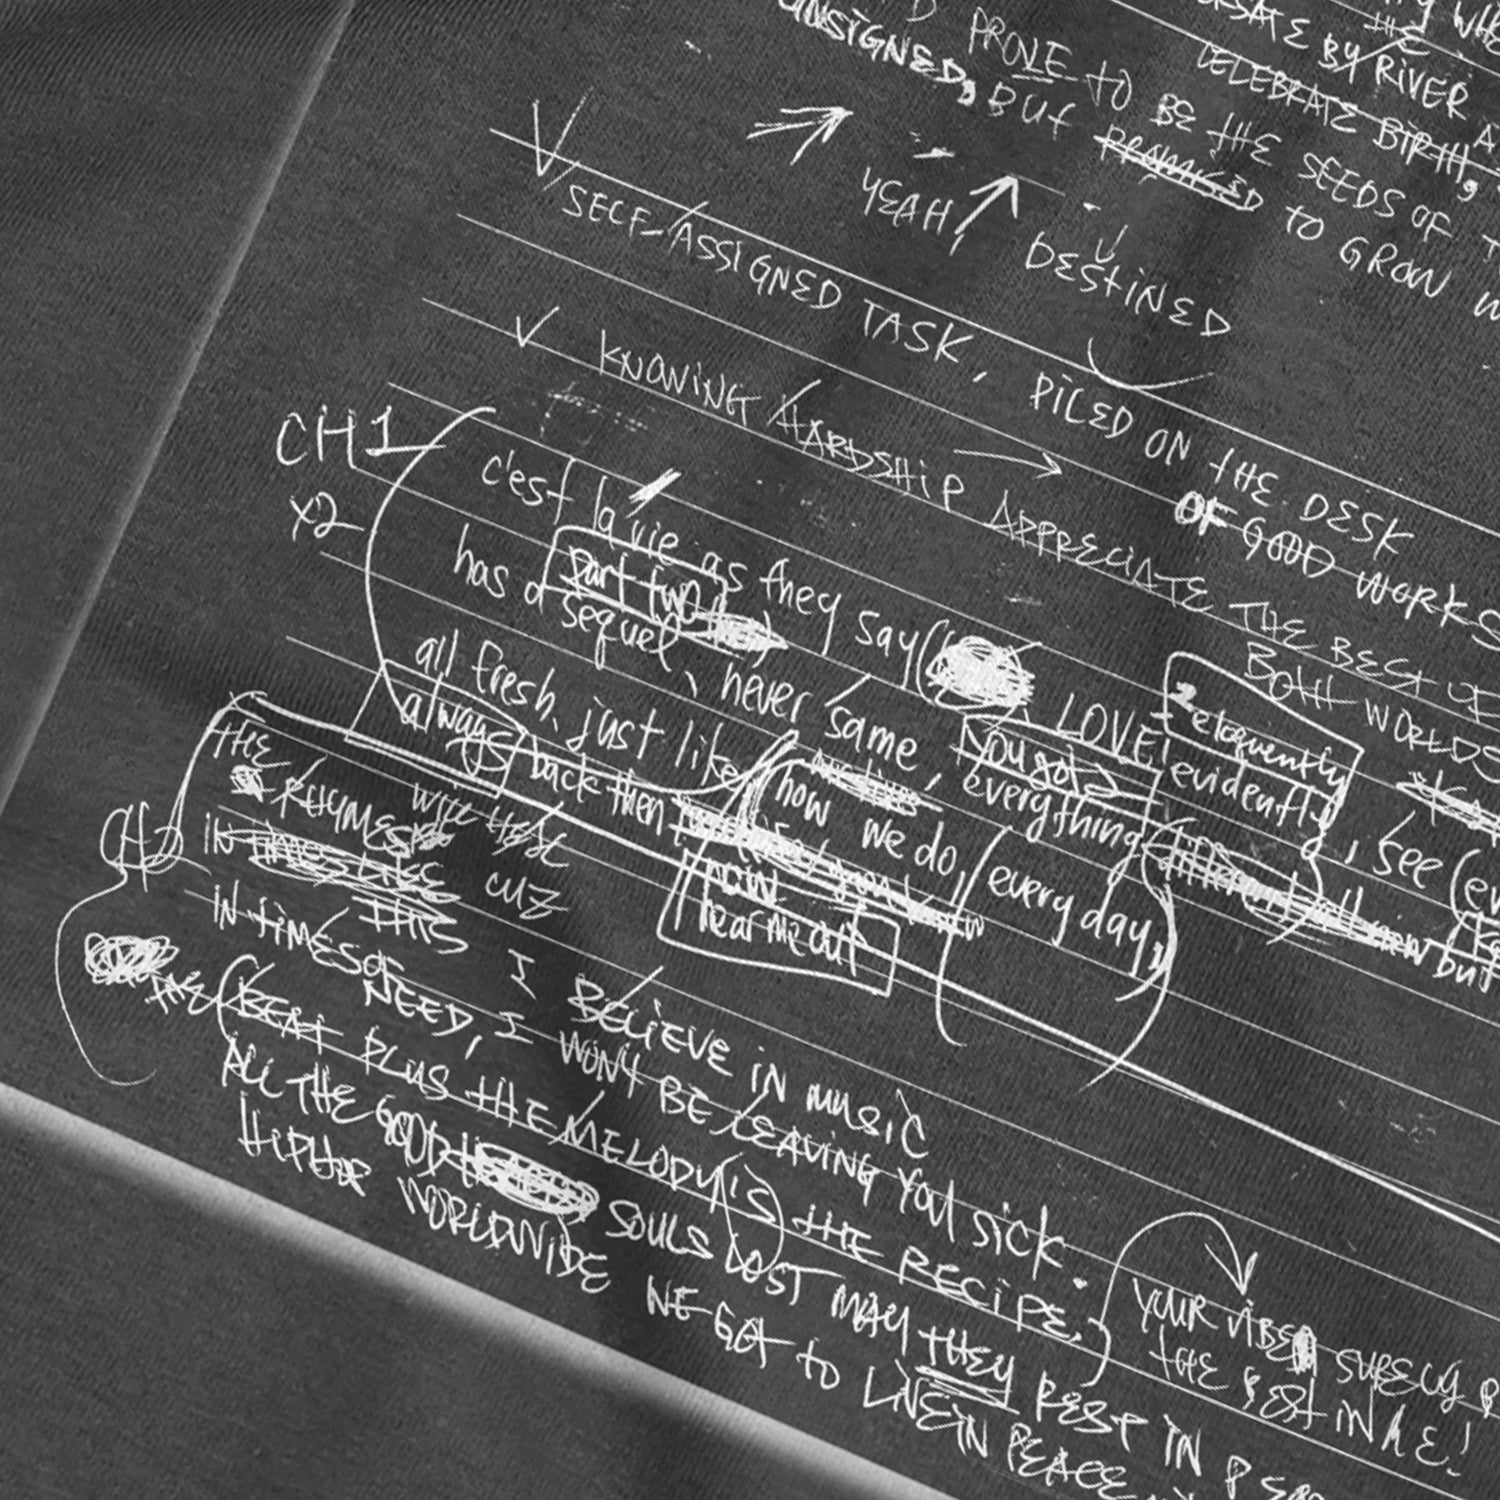 PROVE TO BE THE SEEDS OF
UNSIGNED, BUT PROMISED TO GROW
BY RIVER
CELEBRATE BIRTH,
YEAH!
DESTINED
SELF-ASSIGNED TASK, PILED ON THE DESK
OF GOOD WORKS
KNOWING HARDSHIP → APPRECIATE THE BEST OF
BOTH WORLDS
CH1
x2
c'est la vie as they say ( LOVE! evidently, see
eloquently
part two
has a sequel, never same, everything but
You got
all fresh, just like how we do, every day,
always back then
now
hear me out
CH2
THE RHYMES WILL HEAL CUZ I BELIEVE IN MUSIC
IN TIMES LIKE THIS
IN TIMES OF NEED, I WON'T BE LEAVING YOU SICK.
THE (BEAT PLUS THE MELODY (IS) THE RECIPE,)
YOUR VIBE SURELY
THE BEST IN ME!
ALL THE GOOD SOULS LOST MAY THEY REST IN
HIPHOP WORLDWIDE WE GOT TO LIVE IN PEACE